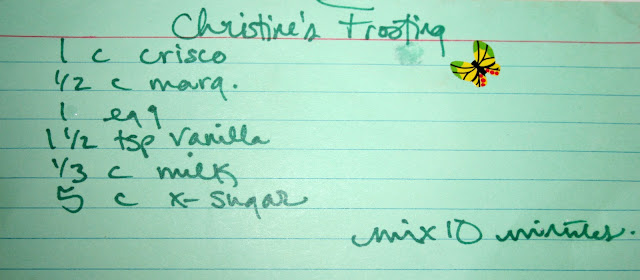 Christine's Frosting
1 c crisco
1/2 c marg.
1 egg
1 1/2 tsp vanilla
1/3 c milk
5 c x-sugar
mix 10 minutes.